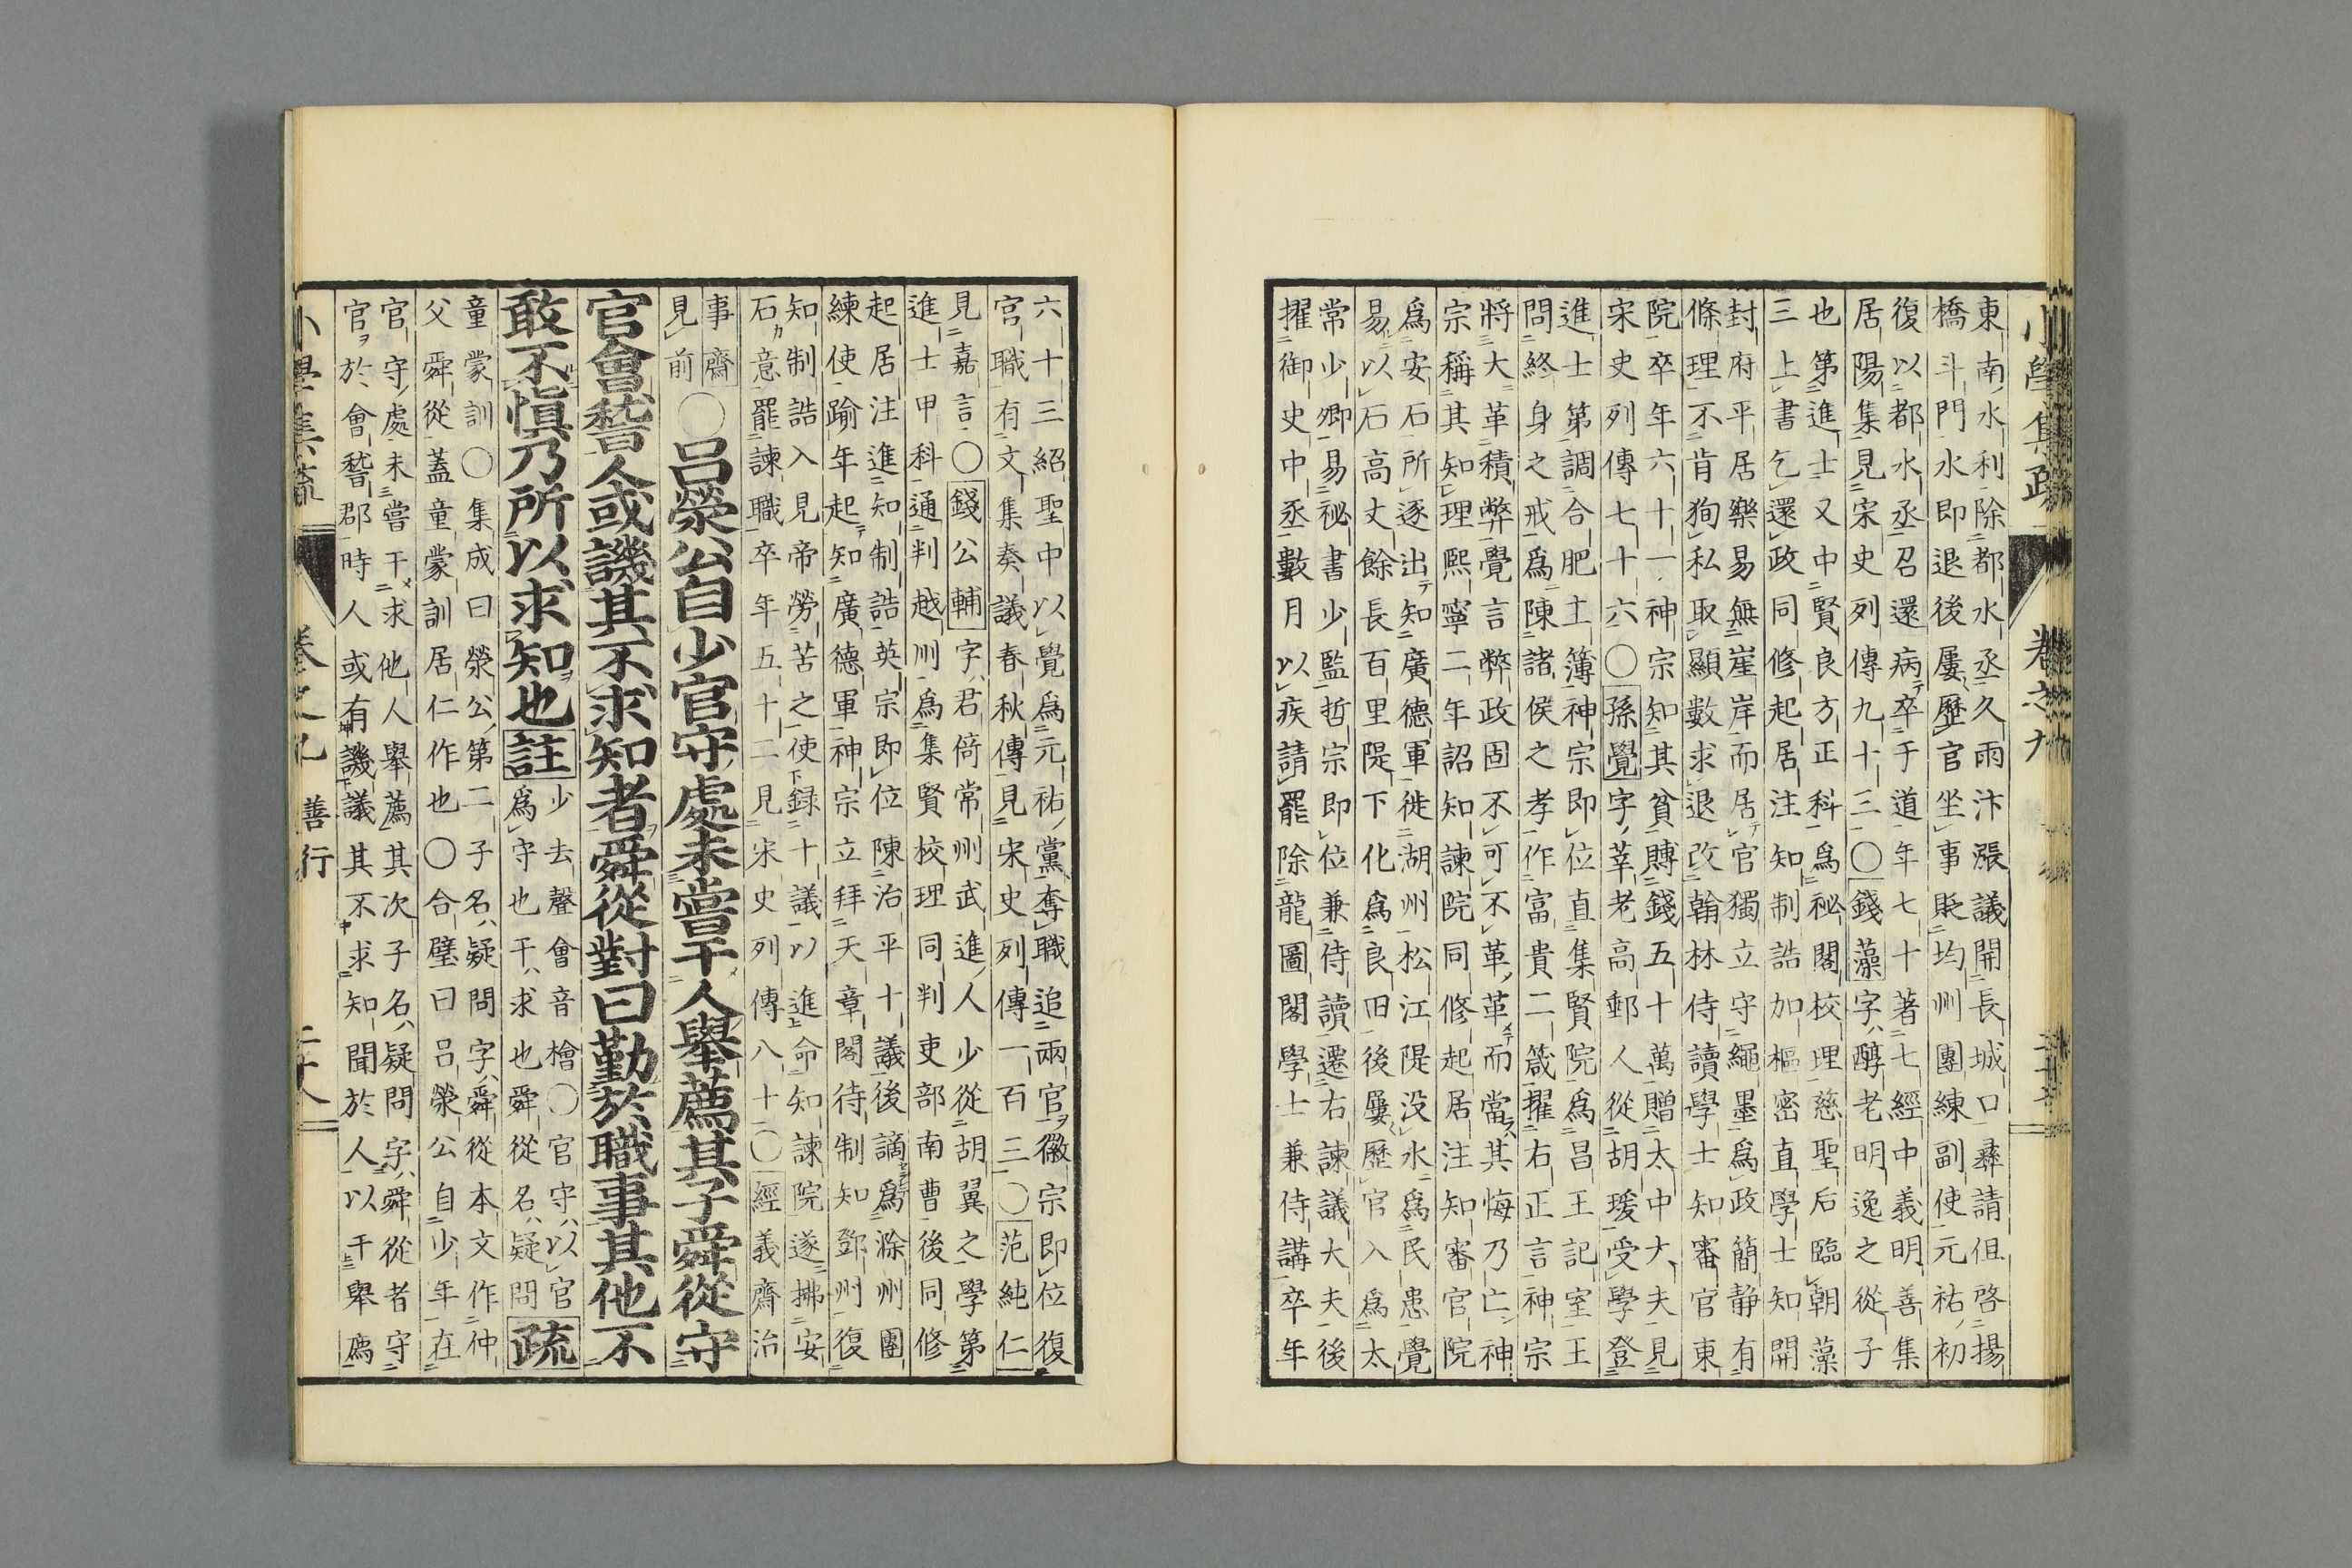 東南水利除都水丞久雨汴漲議開長城口彞請但啓揚
橋斗門水即退後屢歷官坐事貶均州團練副使元祐初
復以都水丞召還病卒于道年七十著七經中義明善集
居陽集見宋史列傳九十三〇錢藻字醇老明逸之從子
也第進士又中賢良方正科爲秘閣校理慈聖后臨朝藻
三上書乞還政同修起居注知制誥加樞密直學士知開
封府平居樂易無崖岸而居官獨立守繩墨爲政簡靜有
條理不肯狥私取顯數求退改翰林侍讀學士知審官東
院卒年六十一神宗知其貧賻錢五十萬贈太中大夫見
宋史列傳七十六〇孫覺字莘老高郵人從胡瑗受學登
進士第調合肥主簿神宗即位直集賢院爲昌王記室王
問終身之戒爲陳諸侯之孝作富貴二箴擢右正言神宗
將大革積弊覺言弊政固不可不革革而當其悔乃亡神
宗稱其知理熙寧二年詔知諫院同修起居注知審官院
爲安石所逐出知廣德軍徙湖州松江隄没水爲民患覺
易以石高丈餘長百里隄下化爲良田後屢歷官入爲太
常少卿易秘書少監哲宗即位兼侍讀遷右諫議大夫後
擢御史中丞數月以疾請罷除龍圖閣學士兼侍講卒年
小學集疏 卷之九
六十三紹聖中以覺爲元祐黨奪職追兩官徽宗即位復
官職有文集奏議春秋傳見宋史列傳一百三〇范純仁
見嘉言〇錢公輔字君倚常州武進人少從胡翼之學第
進士甲科通判越州爲集賢校理同判吏部南曹後同修
起居注進知制誥英宗即位陳治平十議後謫爲滁州團
練使踰年起知廣德軍神宗立拜天章閣待制知鄧州復
知制誥入見帝勞苦之使録十議以進命知諫院遂拂安
石意罷諫職卒年五十二見宋史列傳八十〇經義齋治
事齋
見前〇呂滎公自少官守處未嘗干人舉薦其子舜從守
官會稽人或譏其不求知者舜從對曰勤於職事其他不
敢不愼乃所以求知也註少去聲會音檜〇官守以官
爲守也干求也舜從名疑問疏
童蒙訓〇集成曰滎公第二子名疑問字舜從本文作仲
父舜從蓋童蒙訓居仁作也〇合璧曰呂滎公自少年在
官守處未嘗干求他人舉薦其次子名疑問字舜從者守
官於會稽郡時人或有譏議其不求知聞於人以干舉薦
小學集疏 卷之九 善行